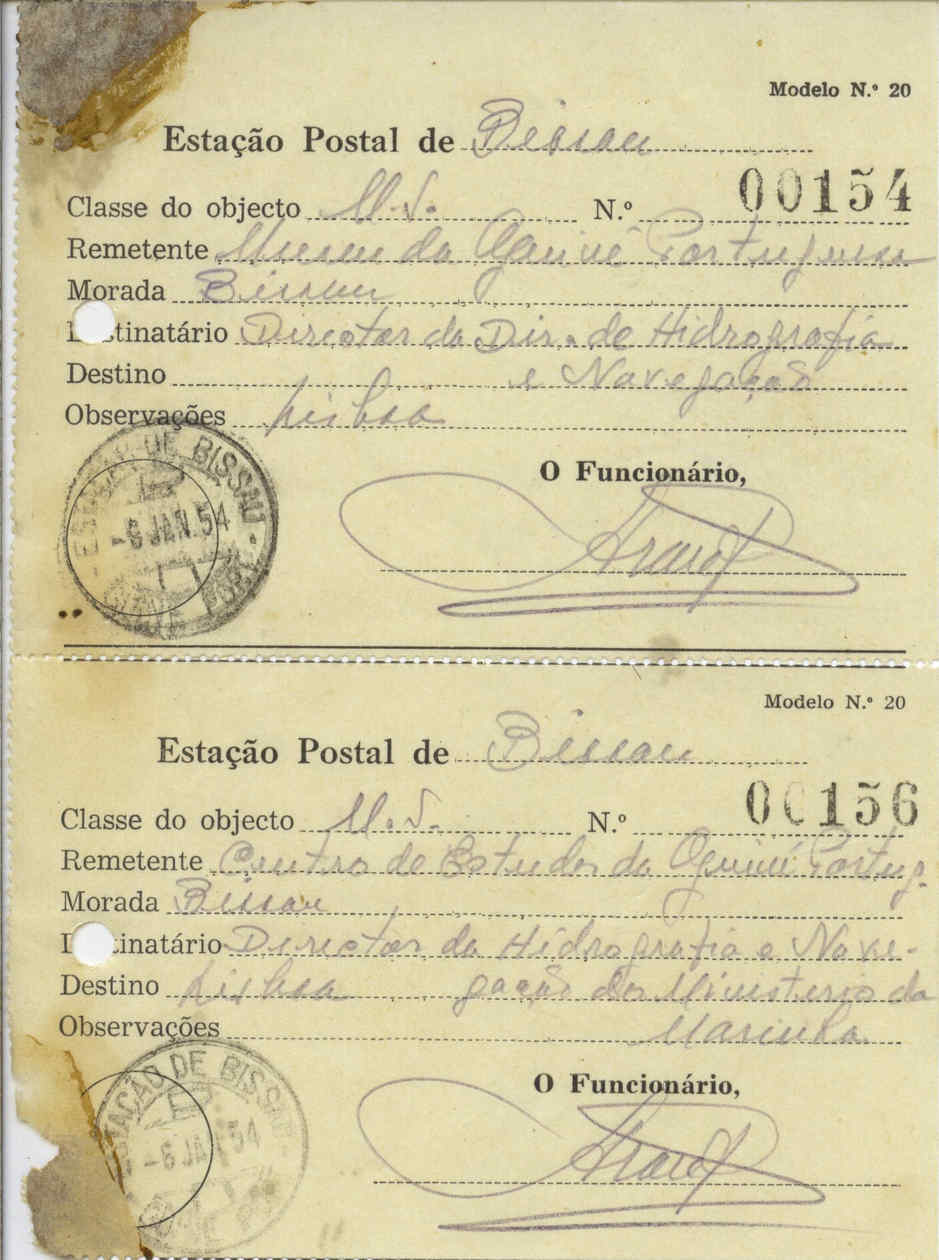 Modelo N.º 20
Estação Postal de Bissau
Classe do objecto M.S. N.º 00154
Remetente Museu da Guiné Portuguesa
Morada Bissau
D stinatário Director da Dir. de Hidrografia
Destino e Navegação
Observações Lisboa
O Funcionário,
DE BISSAU
-6 JAN. 54
Modelo N.º 20
Estação Postal de Bissau
Classe do objecto M.S. N.º 00156
Remetente Centro de Estudos da Guiné Portug.
Morada Bissau
D tinatário Director da Hidrografia e Nave-
Destino Lisboa gação do Ministerio da
Observações Marinha
O Funcionário,
ESTAÇÃO DE BISSAU
-6 JAN 54